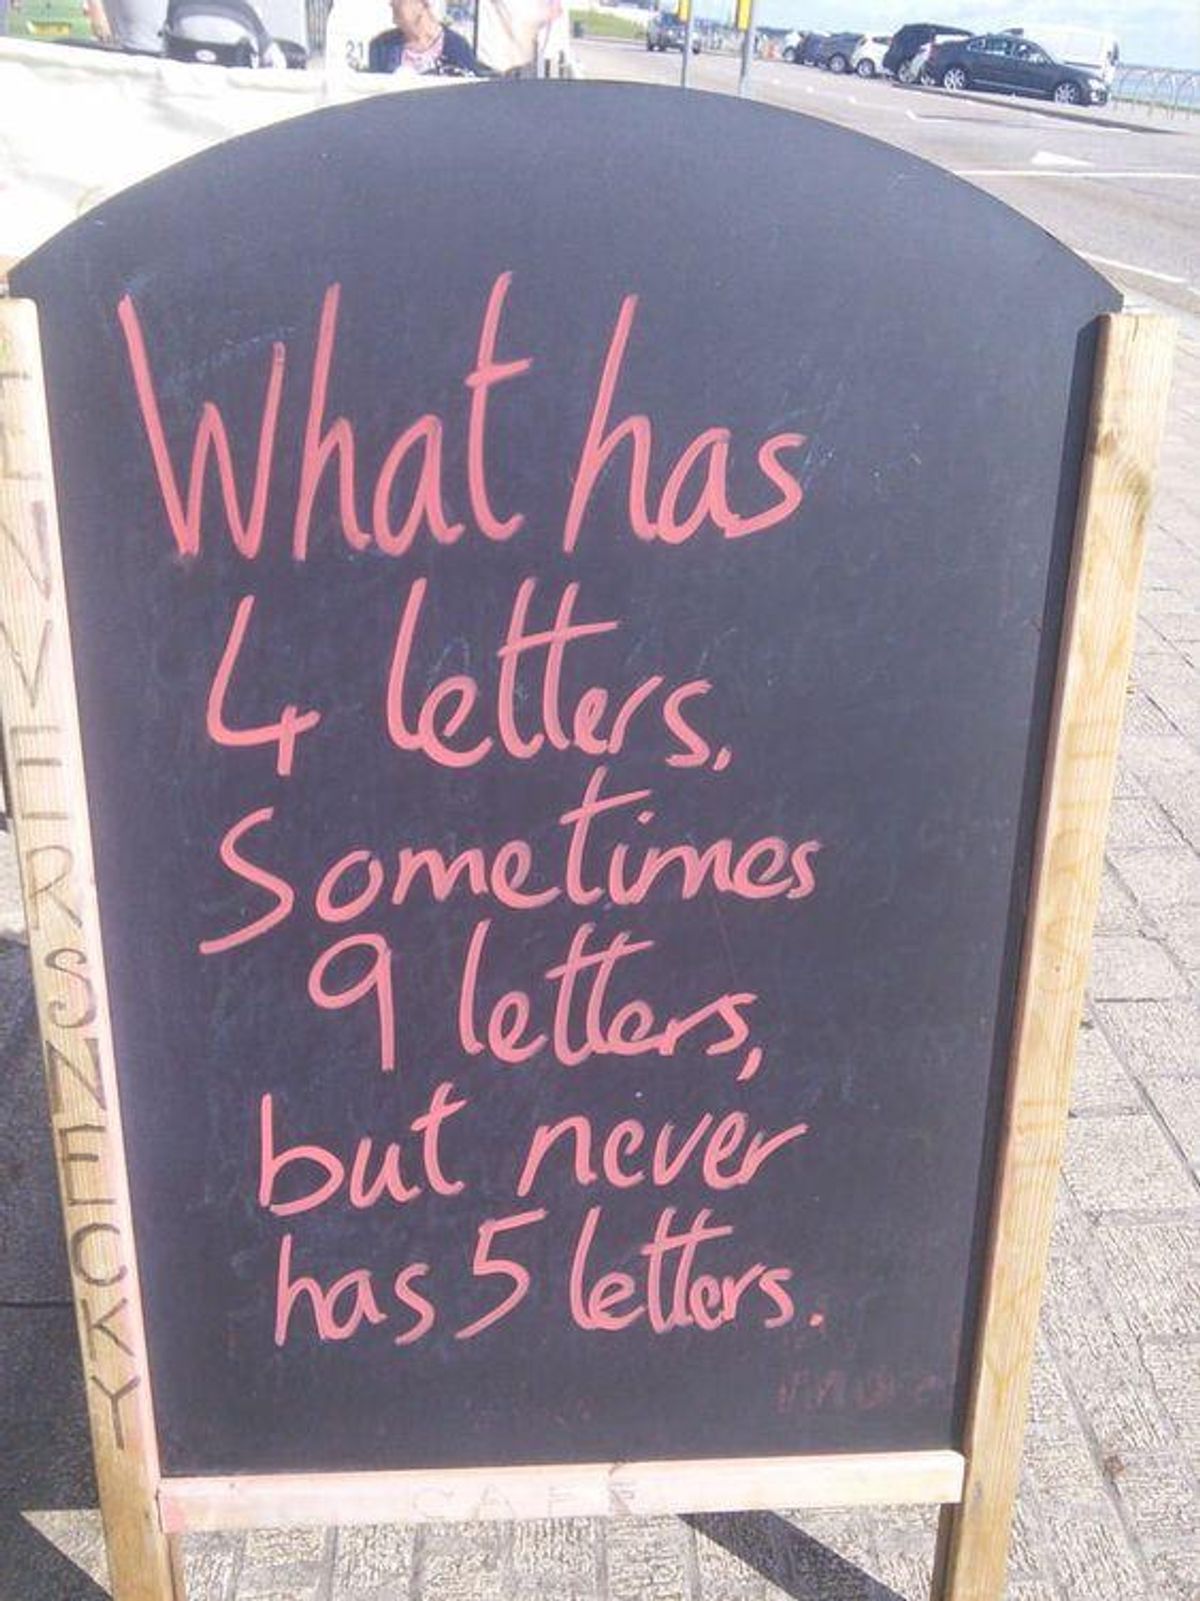 21
What has
4 letters.
Sometimes
9 letters,
but never
has 5 letters.
CAFE